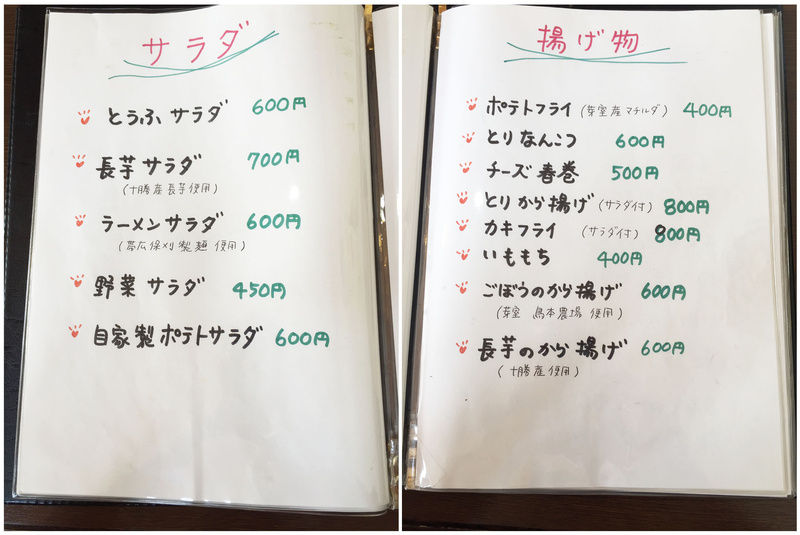 サラダ
とうふサラダ 600円
長芋サラダ 700円
(十勝産長芋使用)
ラーメンサラダ 600円
(帯広保刈製麺使用)
野菜サラダ 450円
自家製ポテトサラダ 600円
揚げ物
ポテトフライ(芽室産マチルダ) 400円
とりなんこつ 600円
チーズ春巻 500円
とりから揚げ(サラダ付) 800円
カキフライ(サラダ付) 800円
いももち 400円
ごぼうのから揚げ 600円
(芽室 鳥本農場 使用)
長芋のから揚げ 600円
(十勝産使用)